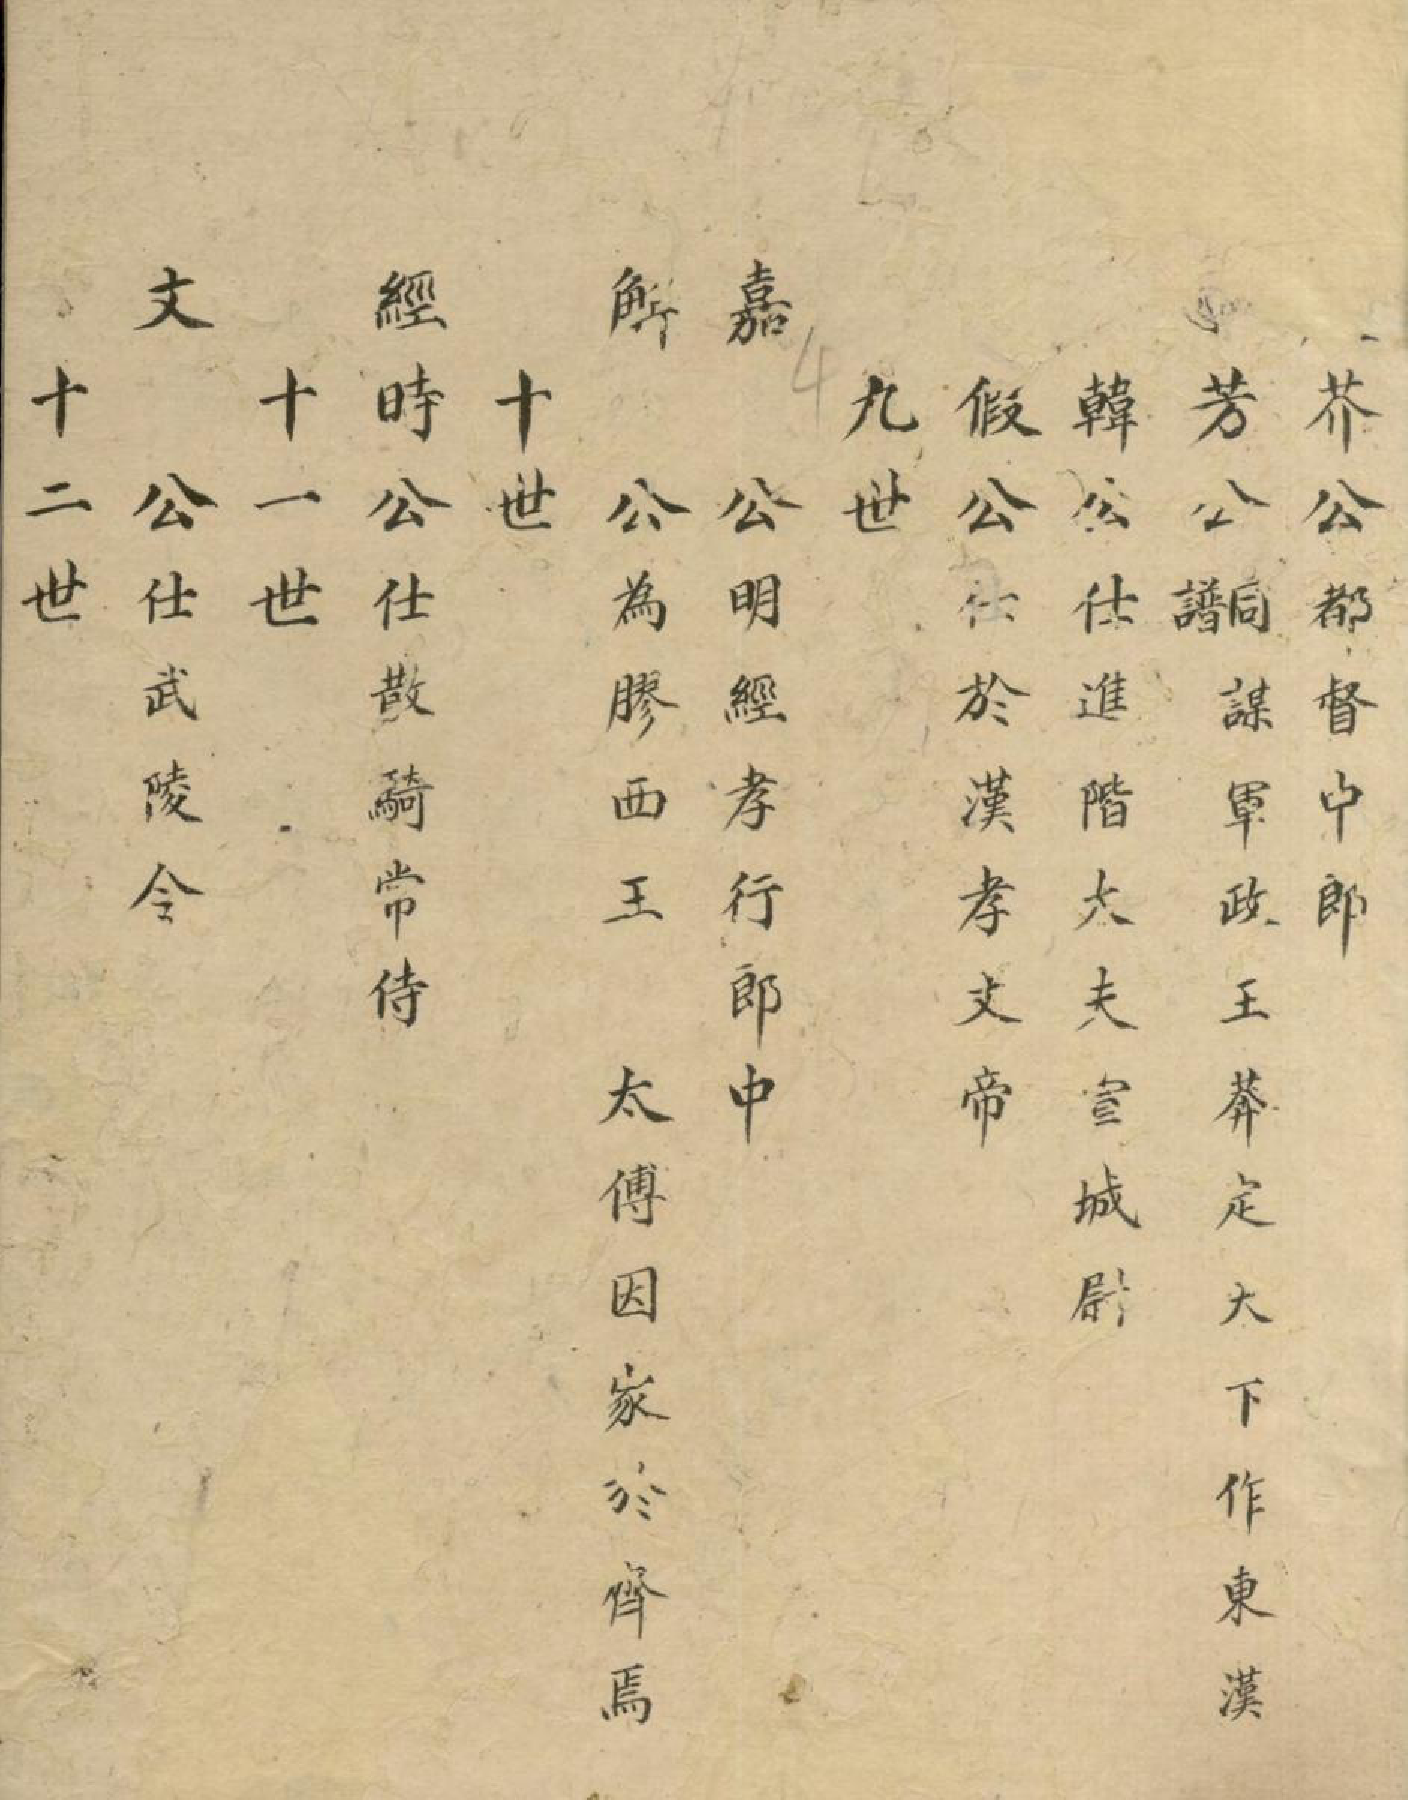 芥公都督中郎
芳公同譜謀軍政王莽定大下作東漢
韓公仕進階大夫宣城尉
假公仕於漢孝文帝
九世
嘉公明經孝行郎中
觧公為膠西王 太傅因家於齊焉
十世
經時公仕散騎常侍
十一世
文公仕武陵令
十二世